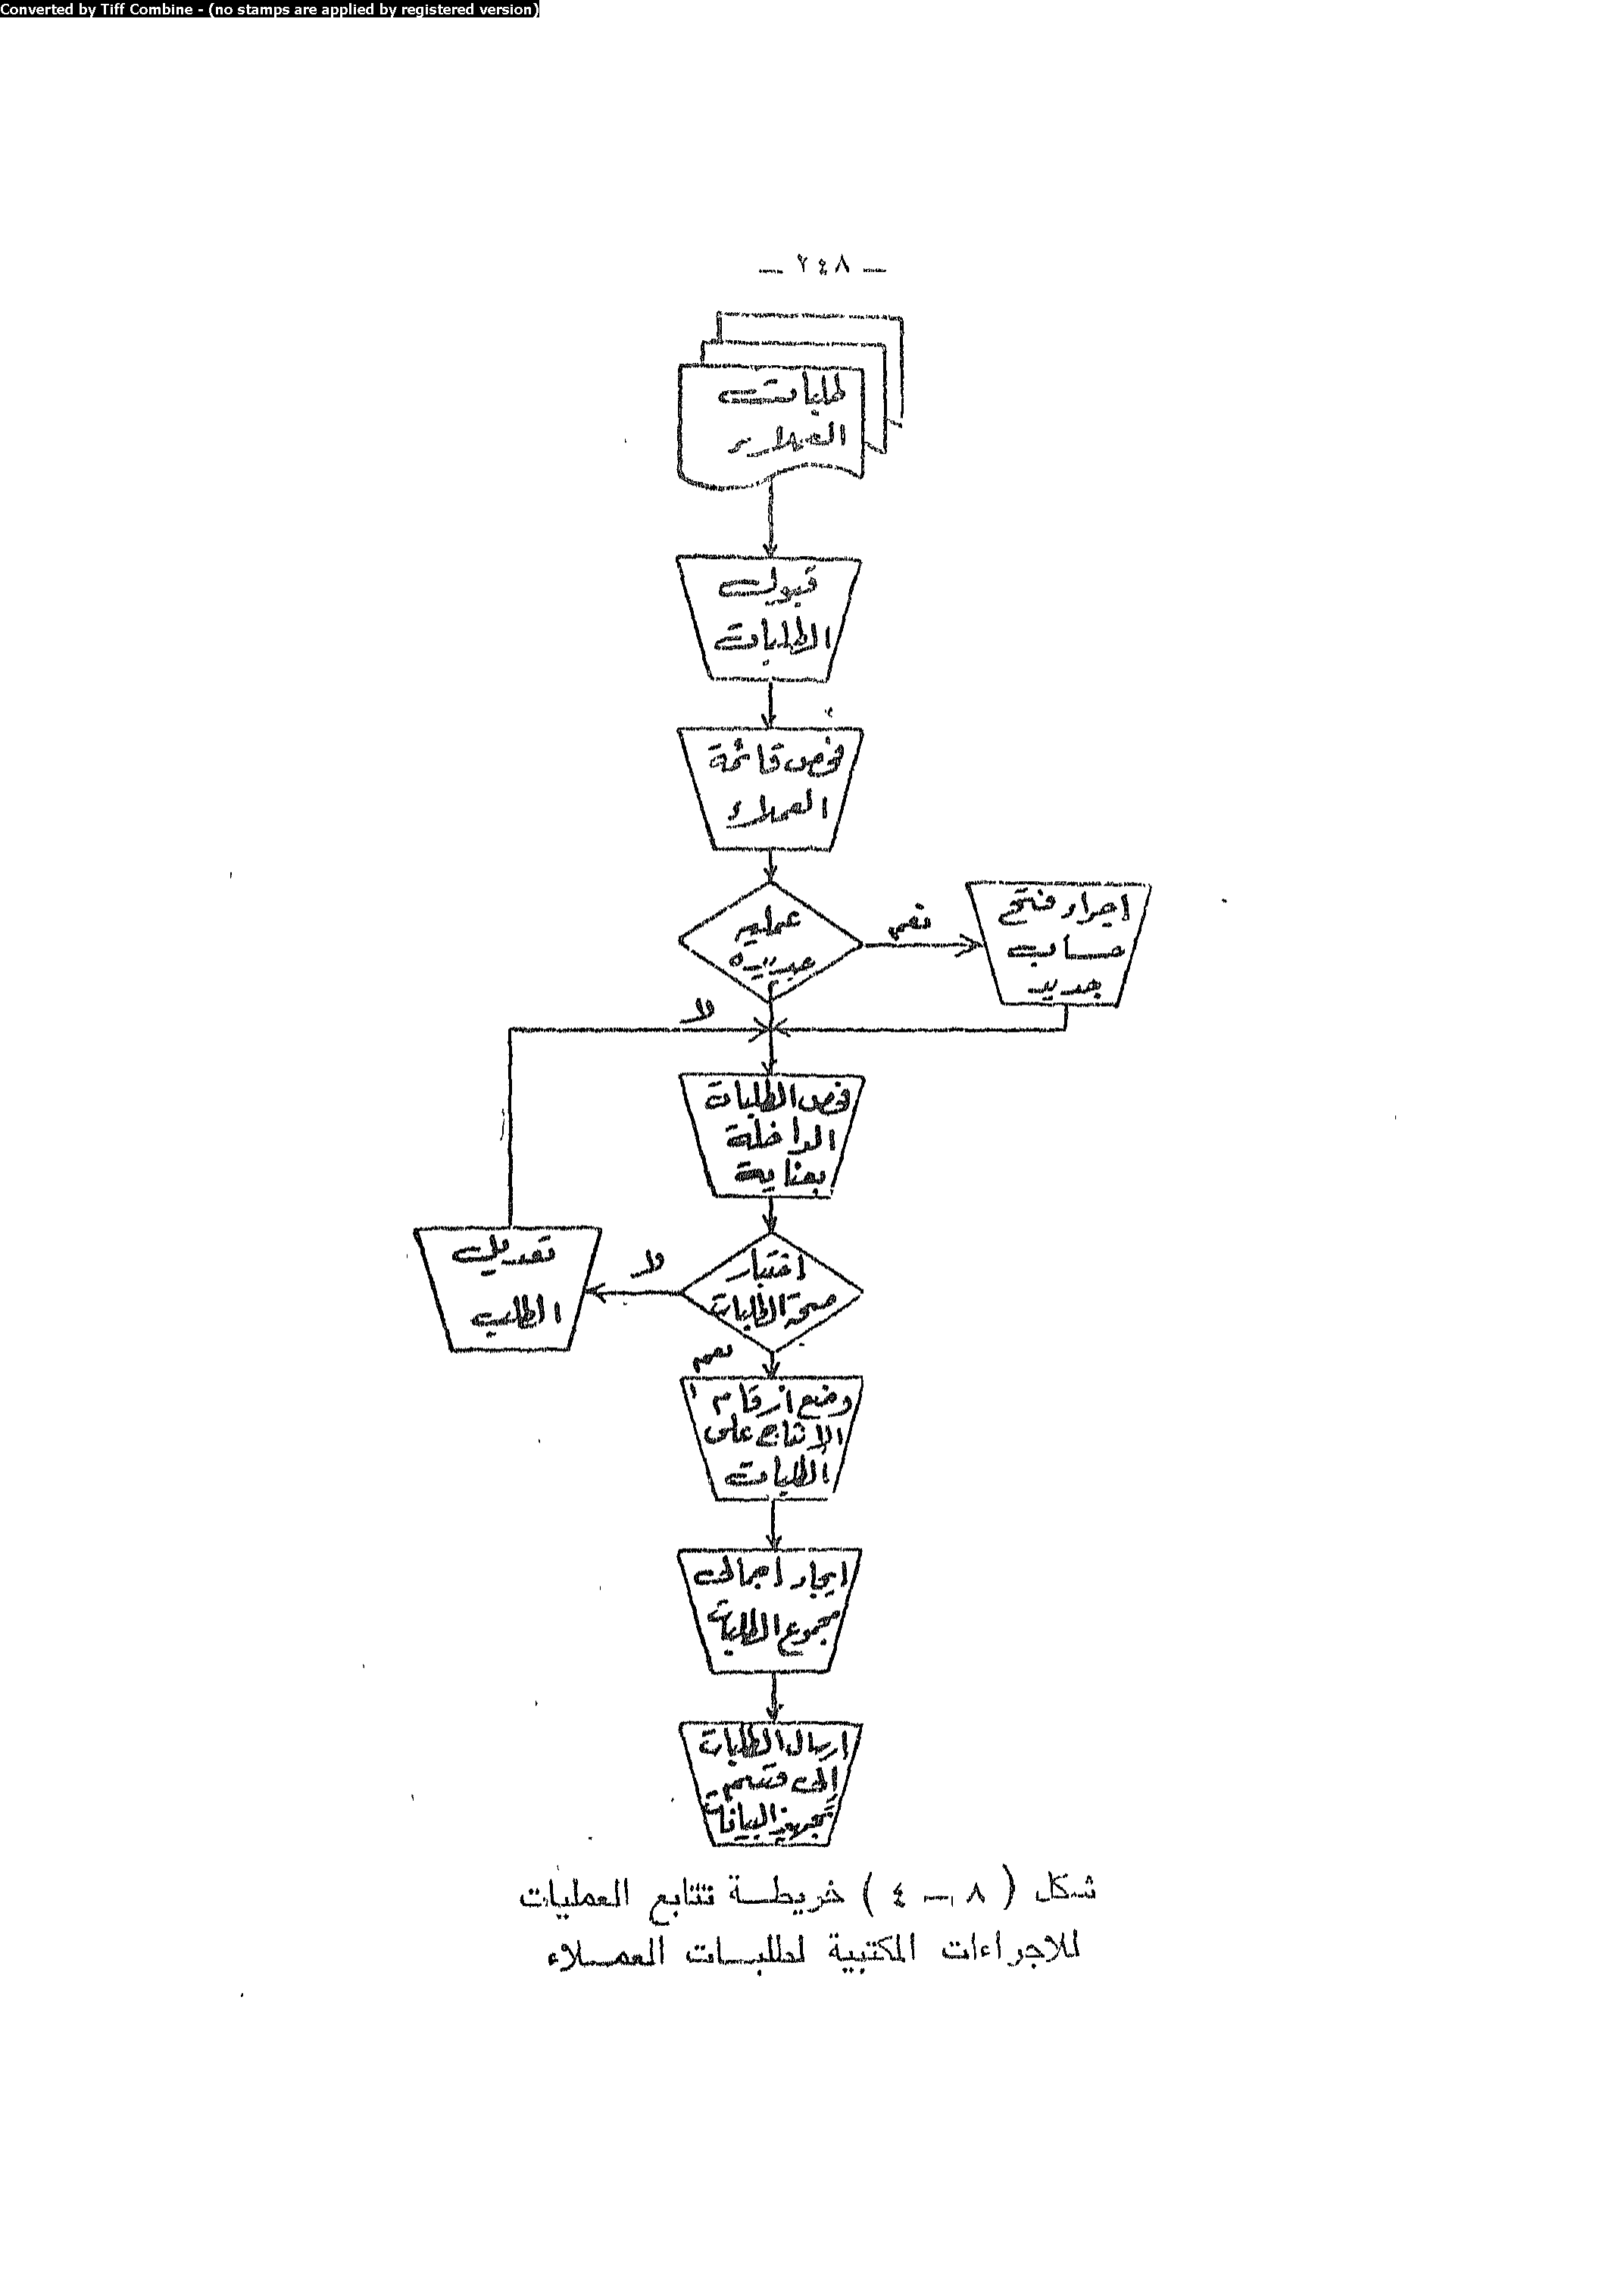 Converted by Tiff Combine - (no stamps are applied by registered version)
— ٢٤٨ —
طلبات
العملاء
قبول
الطلبات
فحص قائمة
العملاء
عملية
جديدة
نعم
اجراء فتح
حساب
جديد
لا
فحص الطلبات
الداخلة
بعناية
اختبار
صحة الطلبات
لا
تعديل
الطلب
نعم
وضع أرقام
الانتاج على
الطلبات
ايجاد اجمالى
مجموع الطلبات
ارسال الطلبات
الى قسم
تجهيز البيانات
شكل ( ٨ — ٤ ) خريطة تتابع العمليات
للاجراءات المكتبية لطلبات العملاء